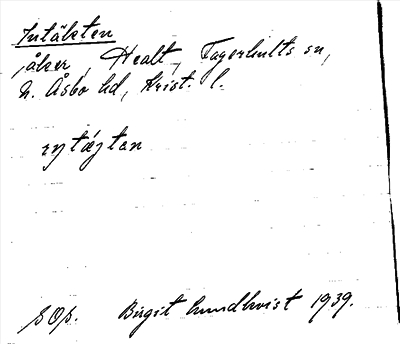 Intäkten
, åker, Healt, Fagerhults sn,
N. Åsbo hd, Krist. l.
Birgit Lundkvist 1939.